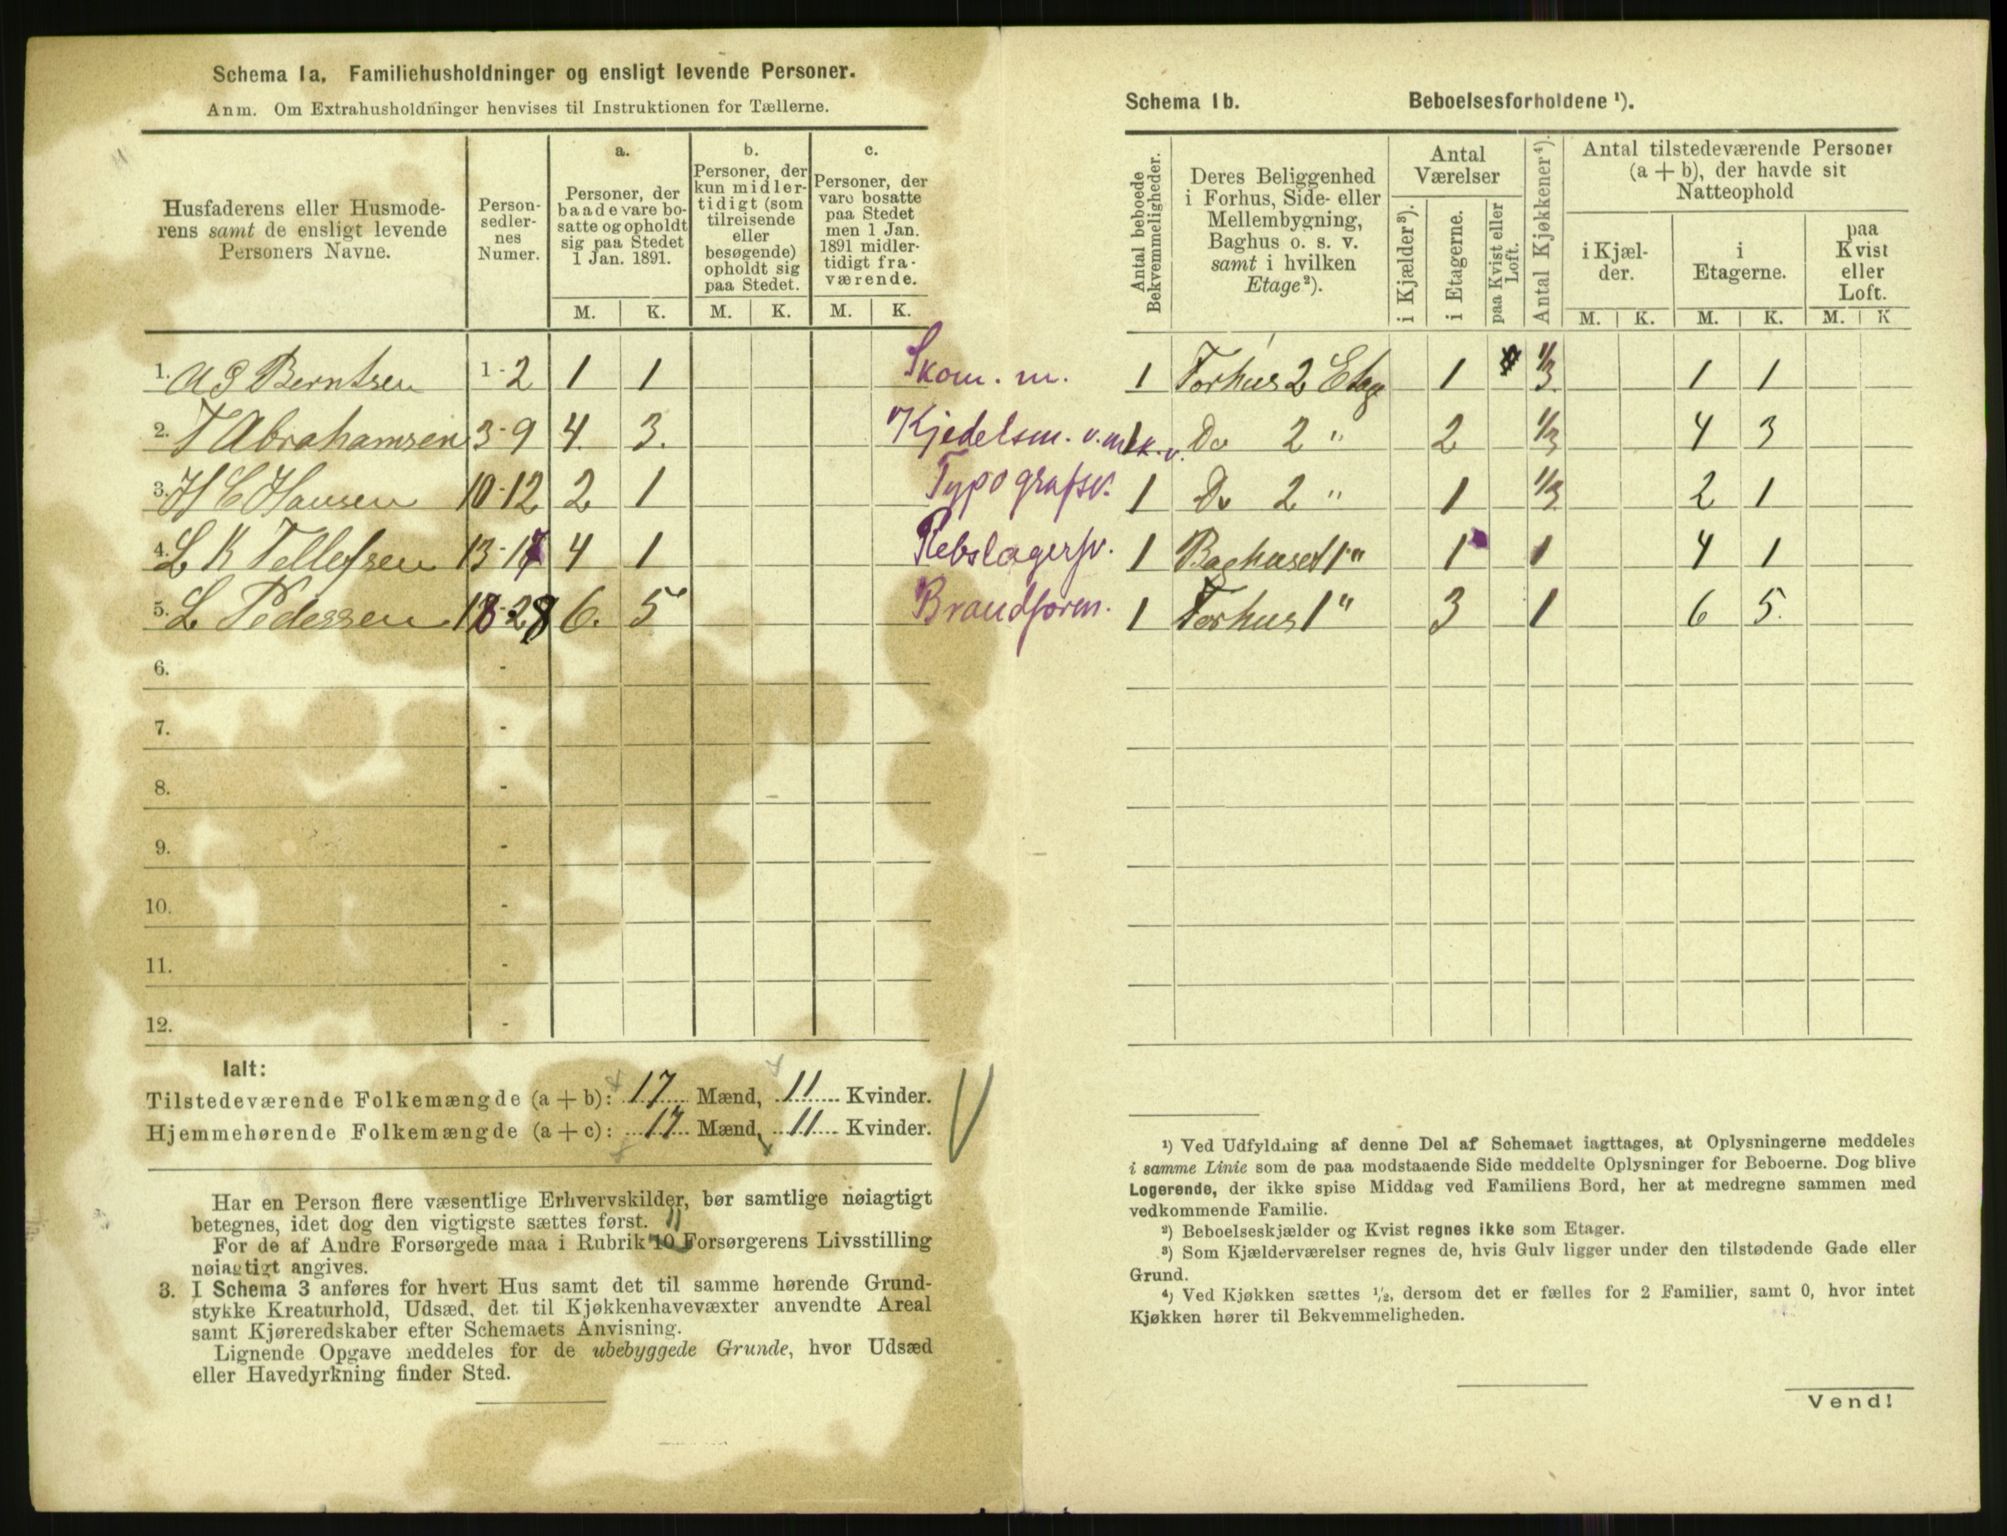 Schema 1a. Familiehusholdninger og ensligt levende Personer.
Anm. Om Extrahusholdninger henvises til Instruktionen for Tællerne.
Husfaderens eller Husmode-
rens samt de ensligt levende
Personers Navne.
Person-
sedler-
nes
Numer.
a.
Personer, der
baade vare bo-
satte og opholdt
sig paa Stedet
1 Jan. 1891.
b.
Personer, der
kun midler-
tidigt (som
tilreisende
eller
besøgende)
opholdt sig
paa Stedet.
c.
Personer, der
vare bosatte
paa Stedet
men 1 Jan.
1891 midler-
tidigt fra-
værende.
M. K. M. K. M. K.
1. A G Berntsen 1-2 1 1 Skom. m.
2. T Abrahamsen 3-9 4 3. Kjedelsm. v. mek. v.
3. H C Hansen 10-12 2 1 Typografsv.
4. L K Tellefsen 13-17 4 1 Rebslagersv.
5. L Pedersen 18-28 6. 5 Brandform.
6. -
7. -
8. -
9. -
10. -
11. -
12. -
Ialt:
Tilstedeværende Folkemængde (a + b): 17 Mænd, 11 Kvinder.
Hjemmehørende Folkemængde (a + c): 17 Mænd, 11 Kvinder.
Har en Person flere væsentlige Erhvervskilder, bør samtlige nøiagtigt
betegnes, idet dog den vigtigste sættes først. 11
For de af Andre Forsørgede maa i Rubrik 10 Forsørgerens Livsstilling
nøiagtigt angives.
3. I Schema 3 anføres for hvert Hus samt det til samme hørende Grund-
stykke Kreaturhold, Udsæd, det til Kjøkkenhavevæxter anvendte Areal
samt Kjøreredskaber efter Schemaets Anvisning.
Lignende Opgave meddeles for de ubebyggede Grunde, hvor Udsæd
eller Havedyrkning finder Sted.
Schema 1b. Beboelsesforholdene ¹).
Antal beboede
Bekvemmeligheder.
Deres Beliggenhed
i Forhus, Side- eller
Mellembygning,
Baghus o. s. v.
samt i hvilken
Etage ²).
Antal
Værelser
i Kjælder ³).
i Etagerne.
paa Kvist eller
Loft.
Antal Kjøkkener ⁴).
Antal tilstedeværende Personer
(a + b), der havde sit
Natteophold
i Kjæl-
der.
i
Etagerne.
paa
Kvist
eller
Loft.
M. K. M. K. M. K
1 Forhus 2 Etage 1 1/3 1 1
1 Do 2 " 2 1/3 4 3
1 Do 2 " 1 1/3 2 1
1 Baghuset 1 " 1 1 4 1
1 Forhus 1 " 3 1 6 5.
¹) Ved Udfyldning af denne Del af Schemaet iagttages, at Oplysningerne meddeles
i samme Linie som de paa modstaaende Side meddelte Oplysninger for Beboerne. Dog blive
Logerende, der ikke spise Middag ved Familiens Bord, her at medregne sammen med
vedkommende Familie.
²) Beboelseskjælder og Kvist regnes ikke som Etager.
³) Som Kjælderværelser regnes de, hvis Gulv ligger under den tilstødende Gade eller
Grund.
⁴) Ved Kjøkken sættes ¹/₂, dersom det er fælles for 2 Familier, samt 0, hvor intet
Kjøkken hører til Bekvemmeligheden.
Vend!